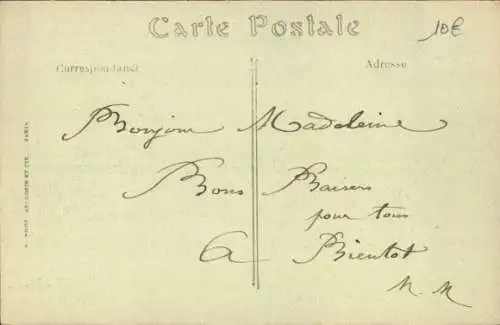 Carte Postale
10€
Correspondance
Adresse
Bonjour Madeleine
Bons Baisers
pour tous
A Bientot
M. M
PARIS